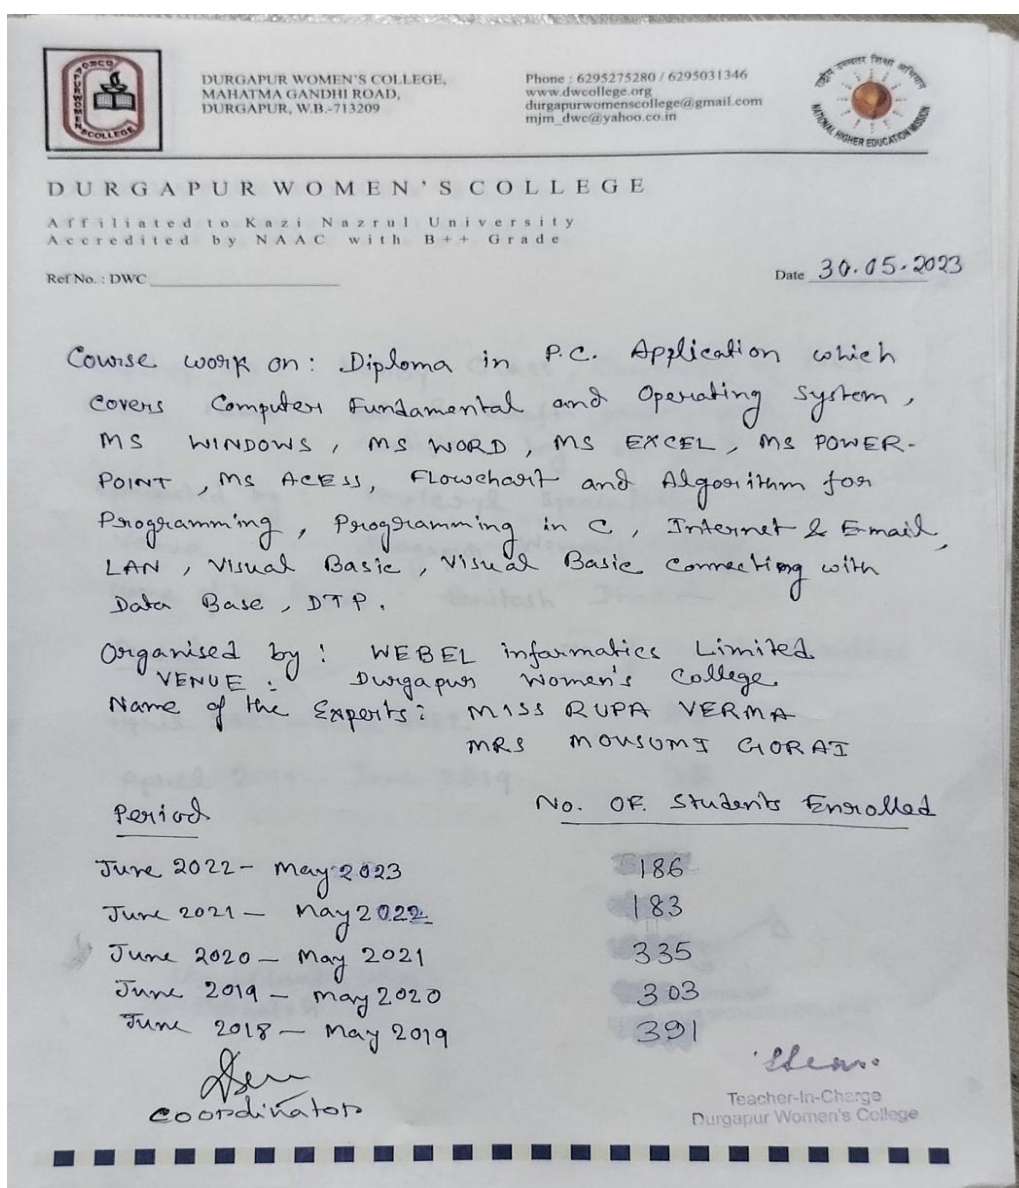 DURGAPUR WOMEN'S COLLEGE,
MAHATMA GANDHI ROAD,
DURGAPUR, W.B.-713209
Phone : 6295275280 / 6295031346
www.dwcollege.org
durgapurwomenscollege@gmail.com
mjm_dwc@yahoo.co.in
राष्ट्रीय उच्चतर शिक्षा अभियान
NATIONAL HIGHER EDUCATION MISSION
DURGAPUR WOMEN'S COLLEGE
Affiliated to Kazi Nazrul University
Accredited by NAAC with B++ Grade
Ref No. : DWC
Date 30.05.2023
Course work on: Diploma in P.C. Application which
covers Computer Fundamental and Operating System,
MS WINDOWS, MS WORD, MS EXCEL, MS POWER-
POINT, MS ACESS, Flowchart and Algorithm for
Programming, Programming in C., Internet & E-mail,
LAN, Visual Basic, Visual Basic connecting with
Data Base, DTP.
Organised by: WEBEL informatics Limited
VENUE: Durgapur Women's College.
Name of the Experts: MISS RUPA VERMA
MRS MOUSUMI GORAI
Period No. OF Students Enrolled
June 2022 - May 2023 186
June 2021 - May 2022. 183
June 2020 - May 2021 335
June 2019 - May 2020 303
June 2018 - May 2019 391
Coordinator
Teacher-In-Charge
Durgapur Women's College